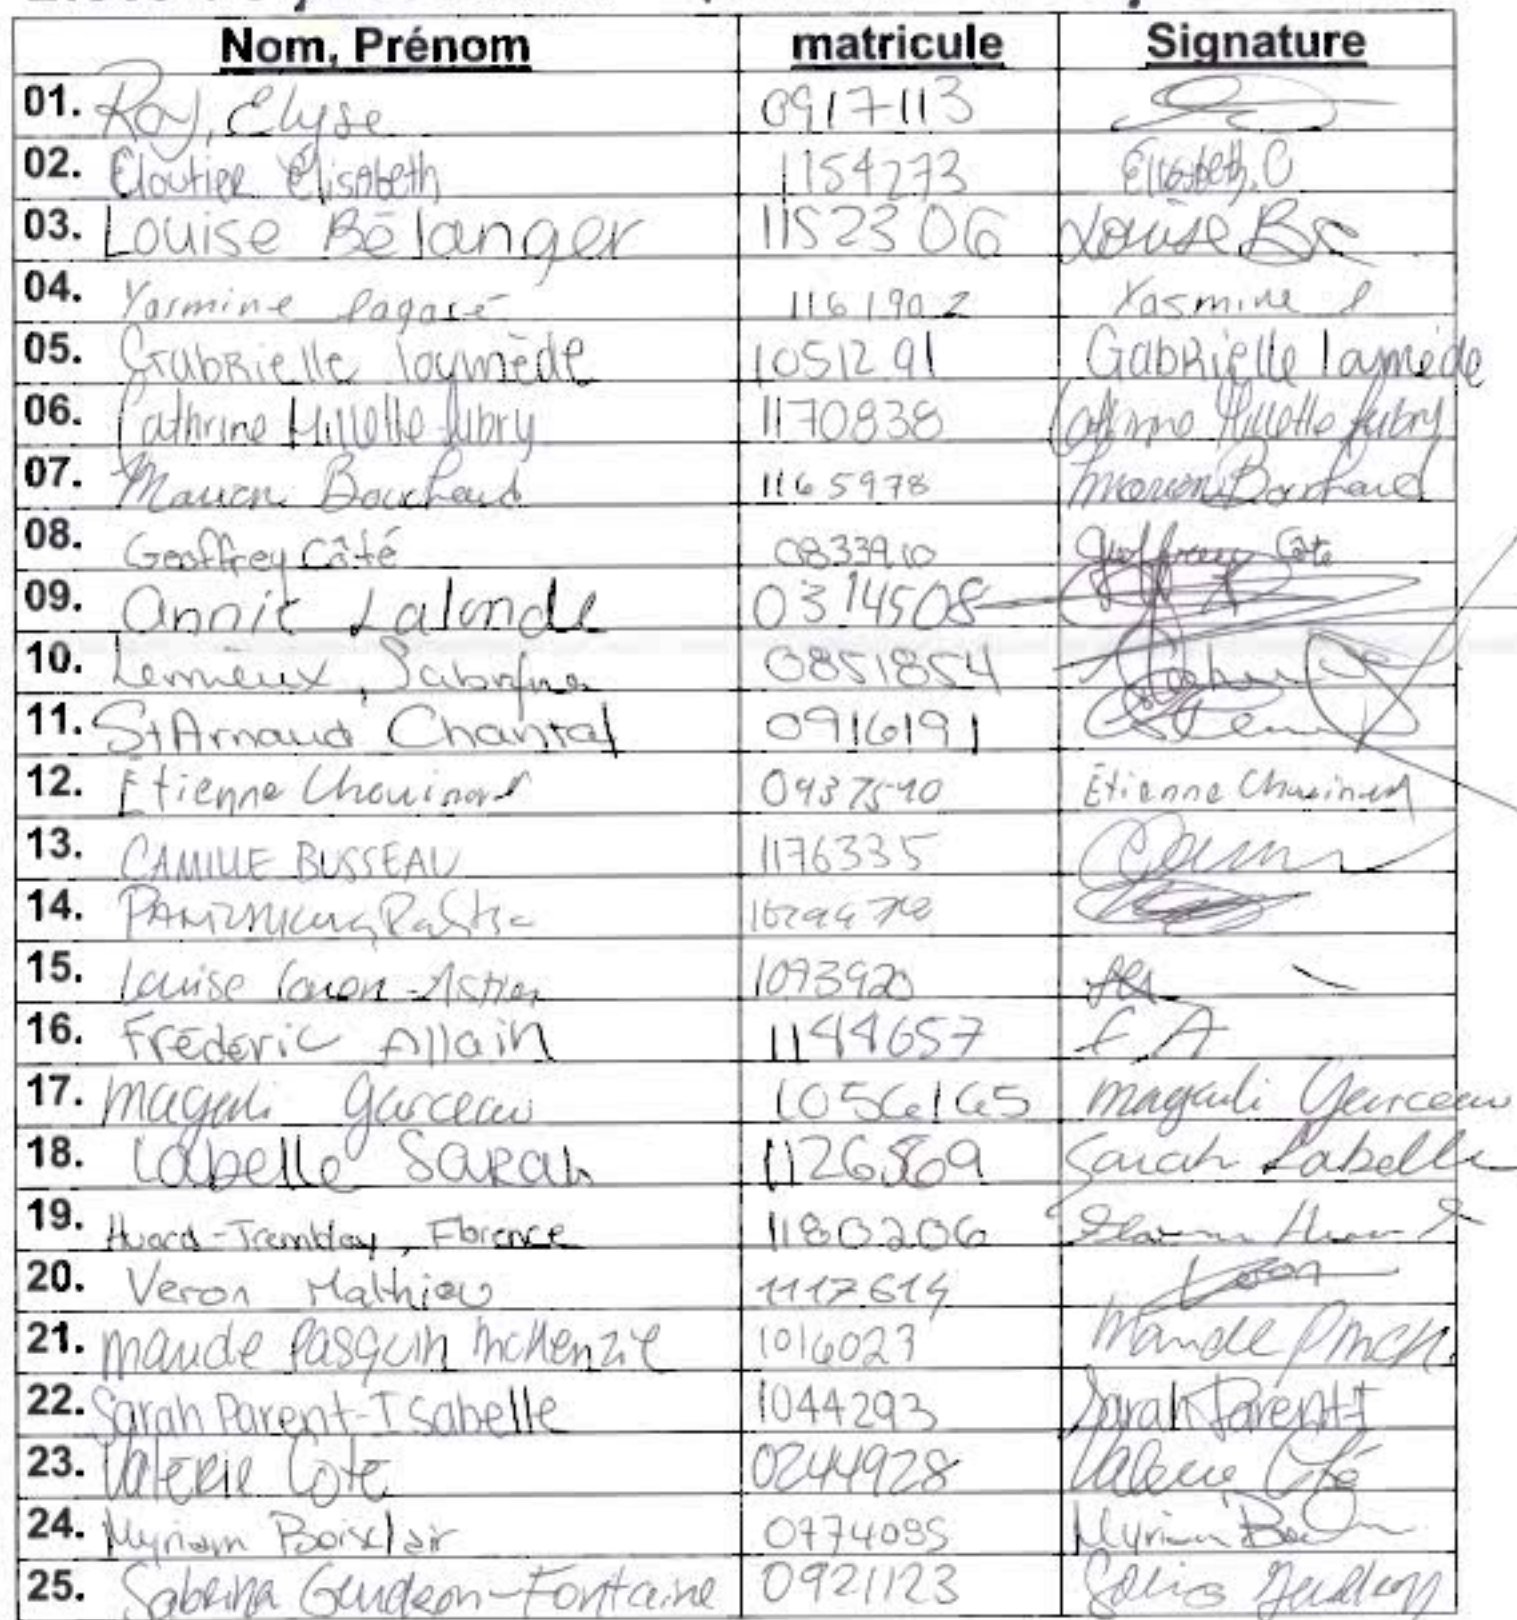 Nom, Prénom matricule Signature
01. Roy, Elyse 0917113
02. Cloutier Élisabeth 1154273 Élisabeth. C
03. Louise Bélanger 1152306 Louise
04. Yasmine 1161902 Yasmine
05. Gabrielle laymède 1051291 Gabrielle laymède
06. Cathrine Millette Aubry 1170838 Millette Aubry
07. Bouchard 1165978 Bouchard
08. Geoffrey Côté 0833910 Geoffrey Côté
09. Annic Lalonde 0314508
10. Lemieux, Sabrina 0851854
11. St Arnaud Chantal 0916191
12. Étienne Chouinard 0937590 Étienne Chouinard
13. CAMILLE BUSSEAU 1176335
14.
15. Louise 1093920
16. Fréderic Allain 1144657 F. A
17. Magali Garceau 1056165 Magali Garceau
18. Labelle Sarah 1126569 Sarah Labelle
19. Huard-Tremblay, Florence 1180206
20. Veron Mathieu 1117614 Veron
21. Maude Pasquin McKenzie 1016023 Maude PMcK.
22. Sarah Parent-Isabelle 1044293 Sarah Parent-I
23. Valérie Coté 0244928 Valérie Côté
24. Myriam Boisclair 0774095 Myriam
25. Sabrina Gendron-Fontaine 0921123